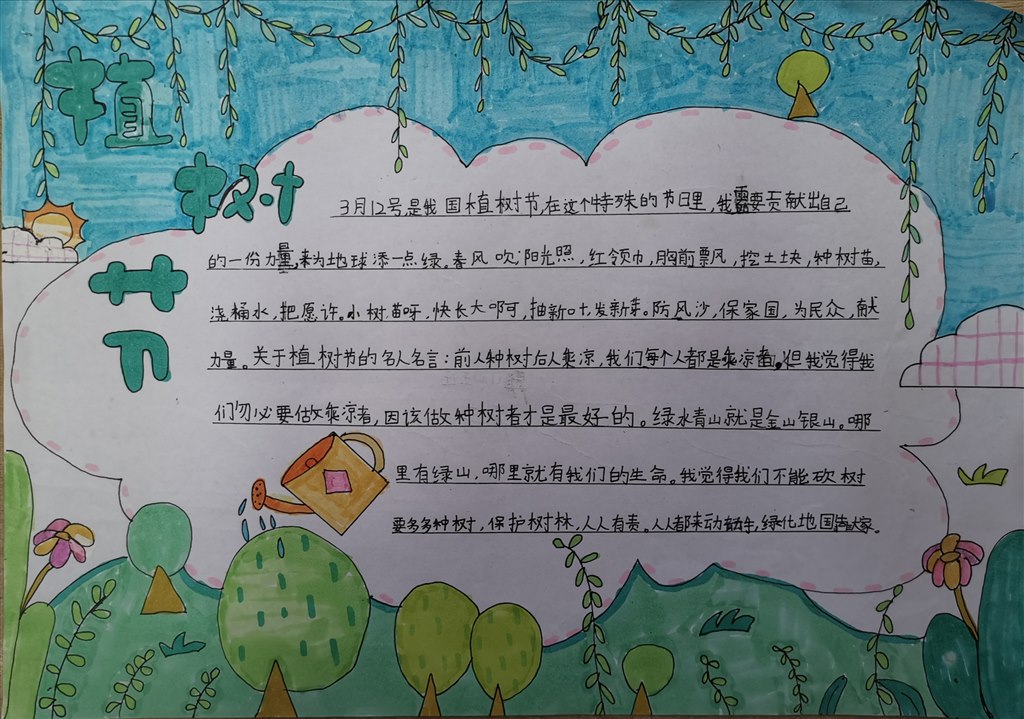 植
树
节
3月12号,是我国植树节,在这个特殊的节日里,我需要贡献出自己
的一份力量,来为地球添一点绿。春风吹,阳光照,红领巾,胸前飘风,挖土块,种树苗,
浇桶水,把愿许。小树苗呀,快长大啊,抽新叶,发新芽。防风沙,保家国,为民众,献
力量。关于植树节的名人名言:前人种树后人乘凉,我们每个人都是乘凉者。但我觉得我
们勿必要做乘凉者,因该做种树者才是最好的。绿水青山就是金山银山。哪
里有绿山,哪里就有我们的生命。我觉得我们不能砍树
要多多种树,保护树林,人人有责。人人都来动手,绿化地国大家。